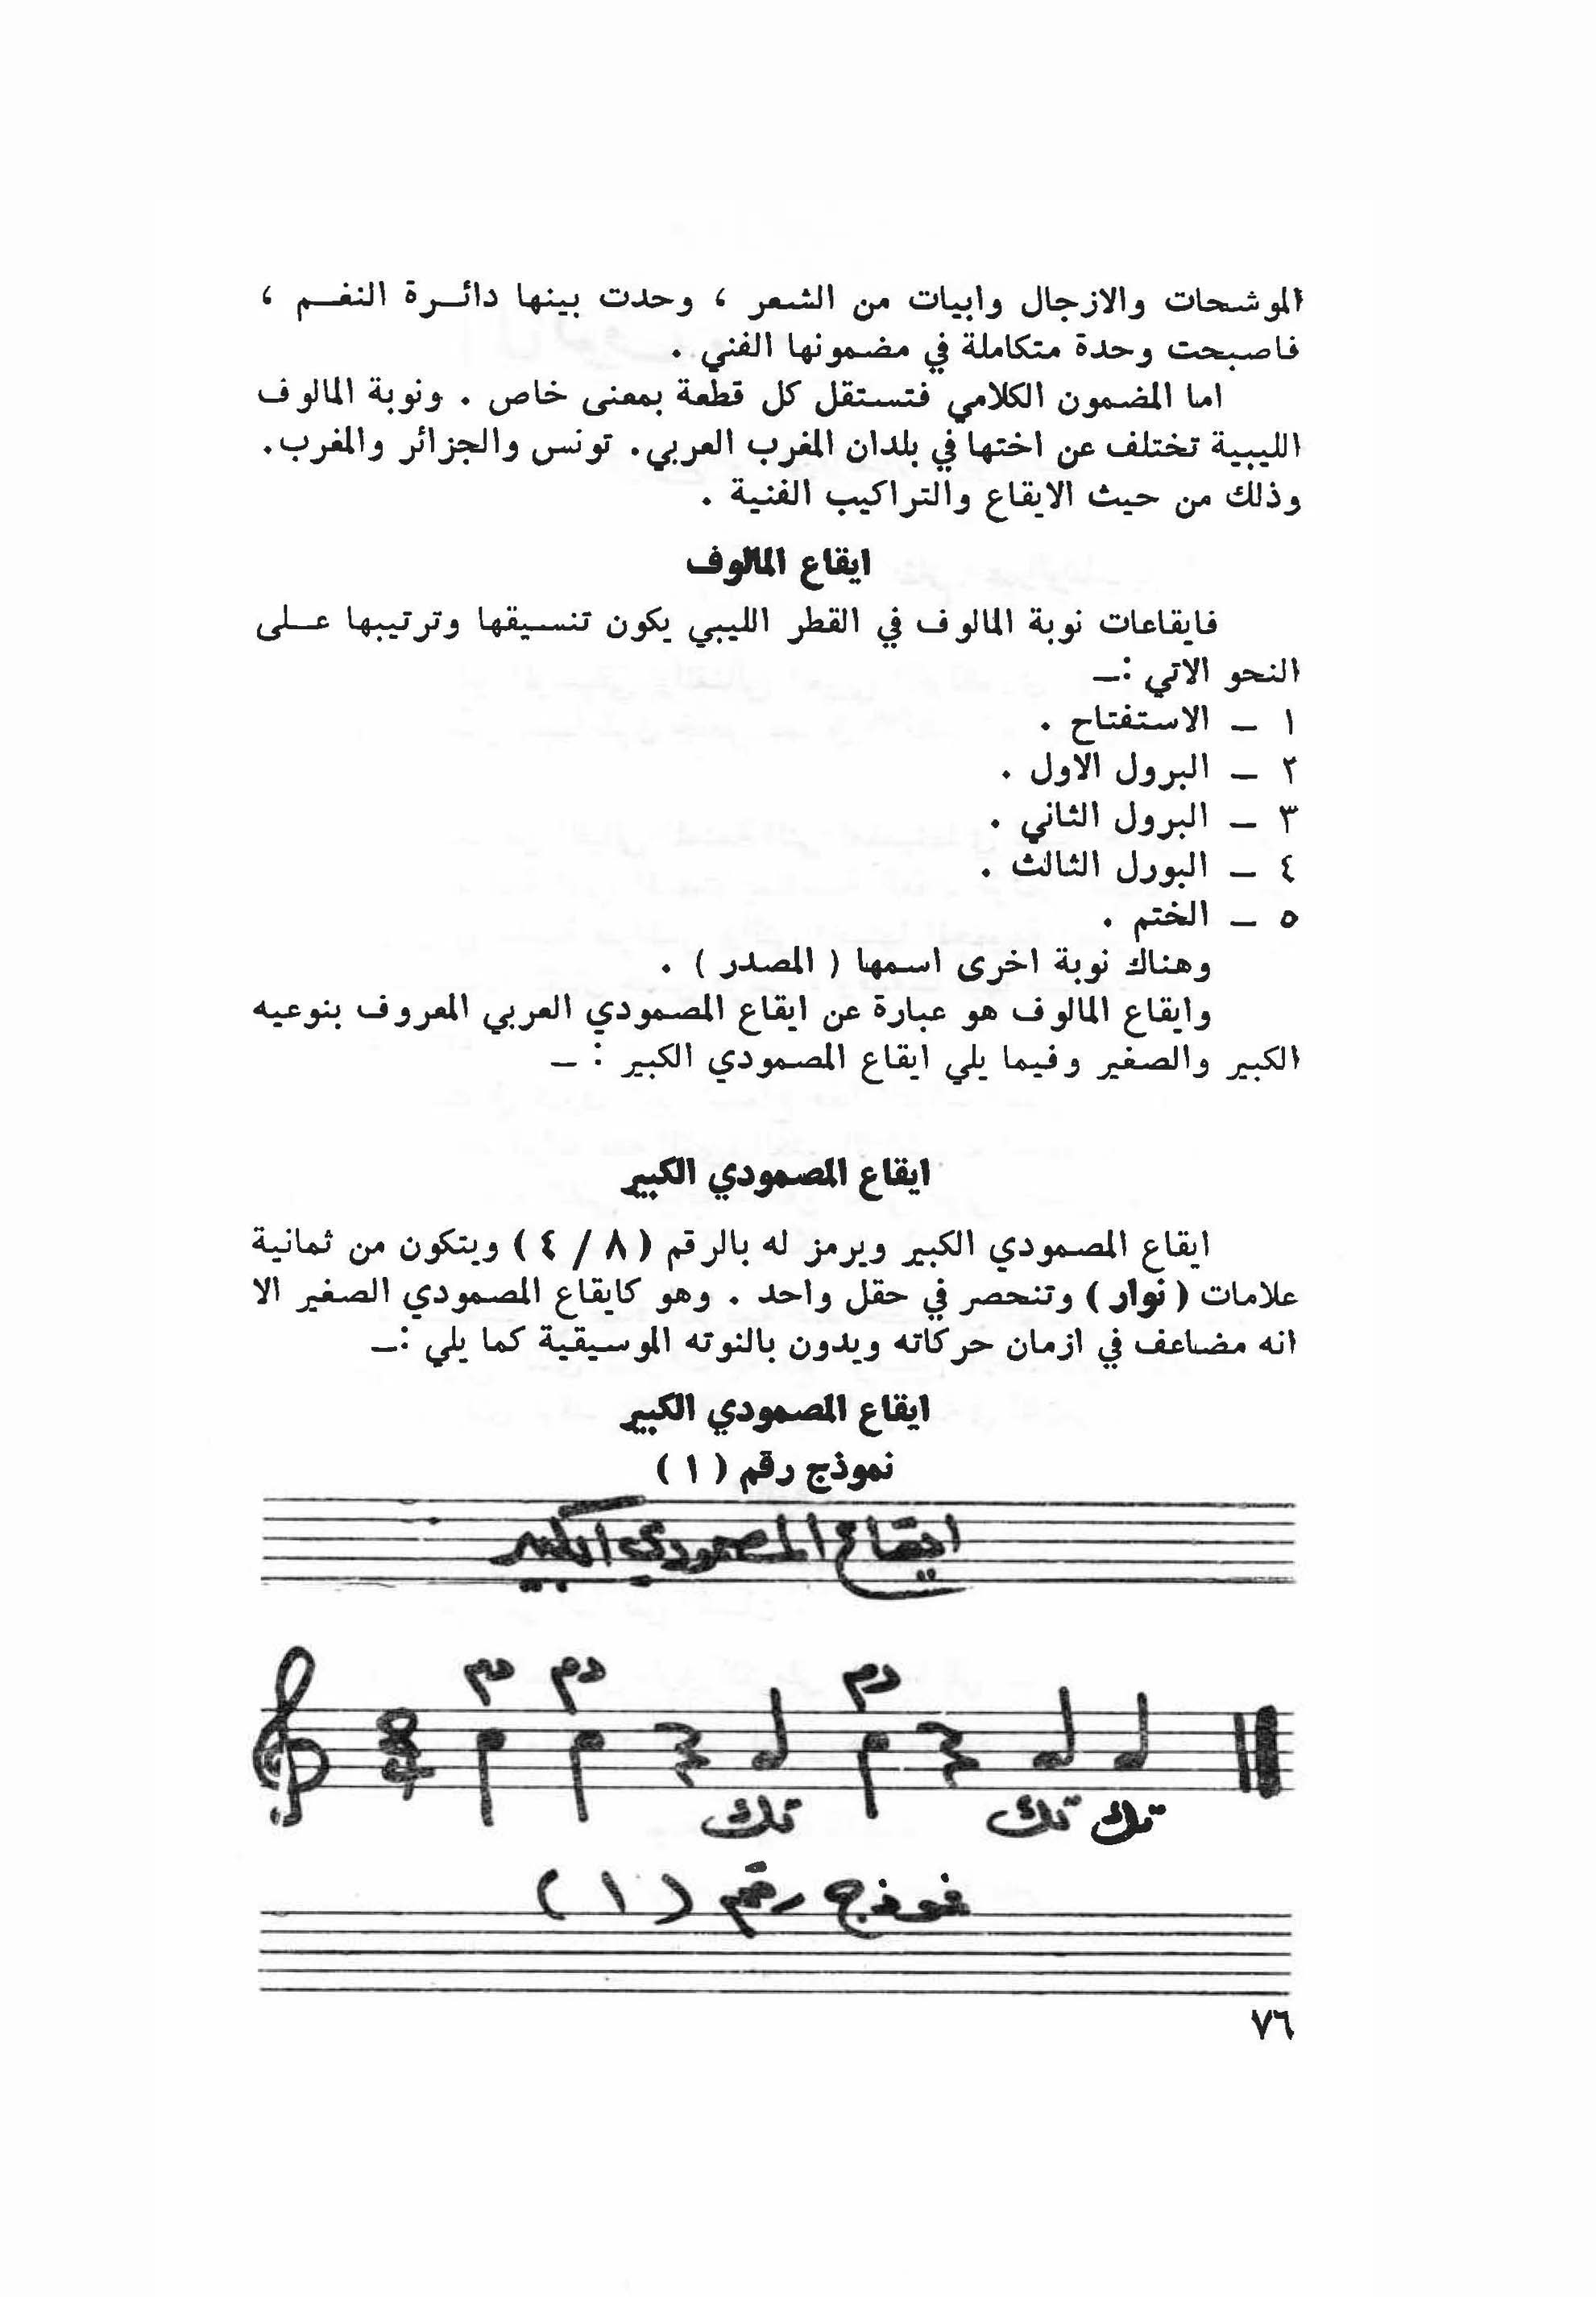 الموشحات والازجال وابيات من الشعر ، وحدت بينها دائـرة النغـم ،
فاصبحت وحدة متكاملة في مضمونها الفني .
اما المضمون الكلامي فتستقل كل قطعة بمعنى خاص . ونوبة المالوف
الليبية تختلف عن اختها في بلدان المغرب العربي. تونس والجزائر والمغرب.
وذلك من حيث الايقاع والتراكيب الفنية .
ايقاع المالوف
فايقاعات نوبة المالوف في القطر الليبي يكون تنسيقها وترتيبها عـلى
النحو الاتي :ـ
١ ـ الاستفتاح .
٢ ـ البرول الاول .
٣ ـ البرول الثاني .
٤ ـ البورل الثالث .
٥ ـ الختم .
وهناك نوبة اخرى اسمها ( المصدر ) .
وايقاع المالوف هو عبارة عن ايقاع المصمودي العربي المعروف بنوعيه
الكبير والصغير وفيما يلي ايقاع المصمودي الكبير : ـ
ايقاع المصمودي الكبير
ايقاع المصمودي الكبير ويرمز له بالرقم ( ٨ / ٤ ) ويتكون من ثمانية
علامات ( نوار ) وتنحصر في حقل واحد . وهو كايقاع المصمودي الصغير الا
انه مضاعف في ازمان حركاته ويدون بالنوته الموسيقية كما يلي :ـ
ايقاع المصمودي الكبير
نموذج رقم ( ١ )
ايقاع المصمودي الكبير
دم دم دم
8
4
تك تك تك
نموذج رقم ( ١ )
٧٦